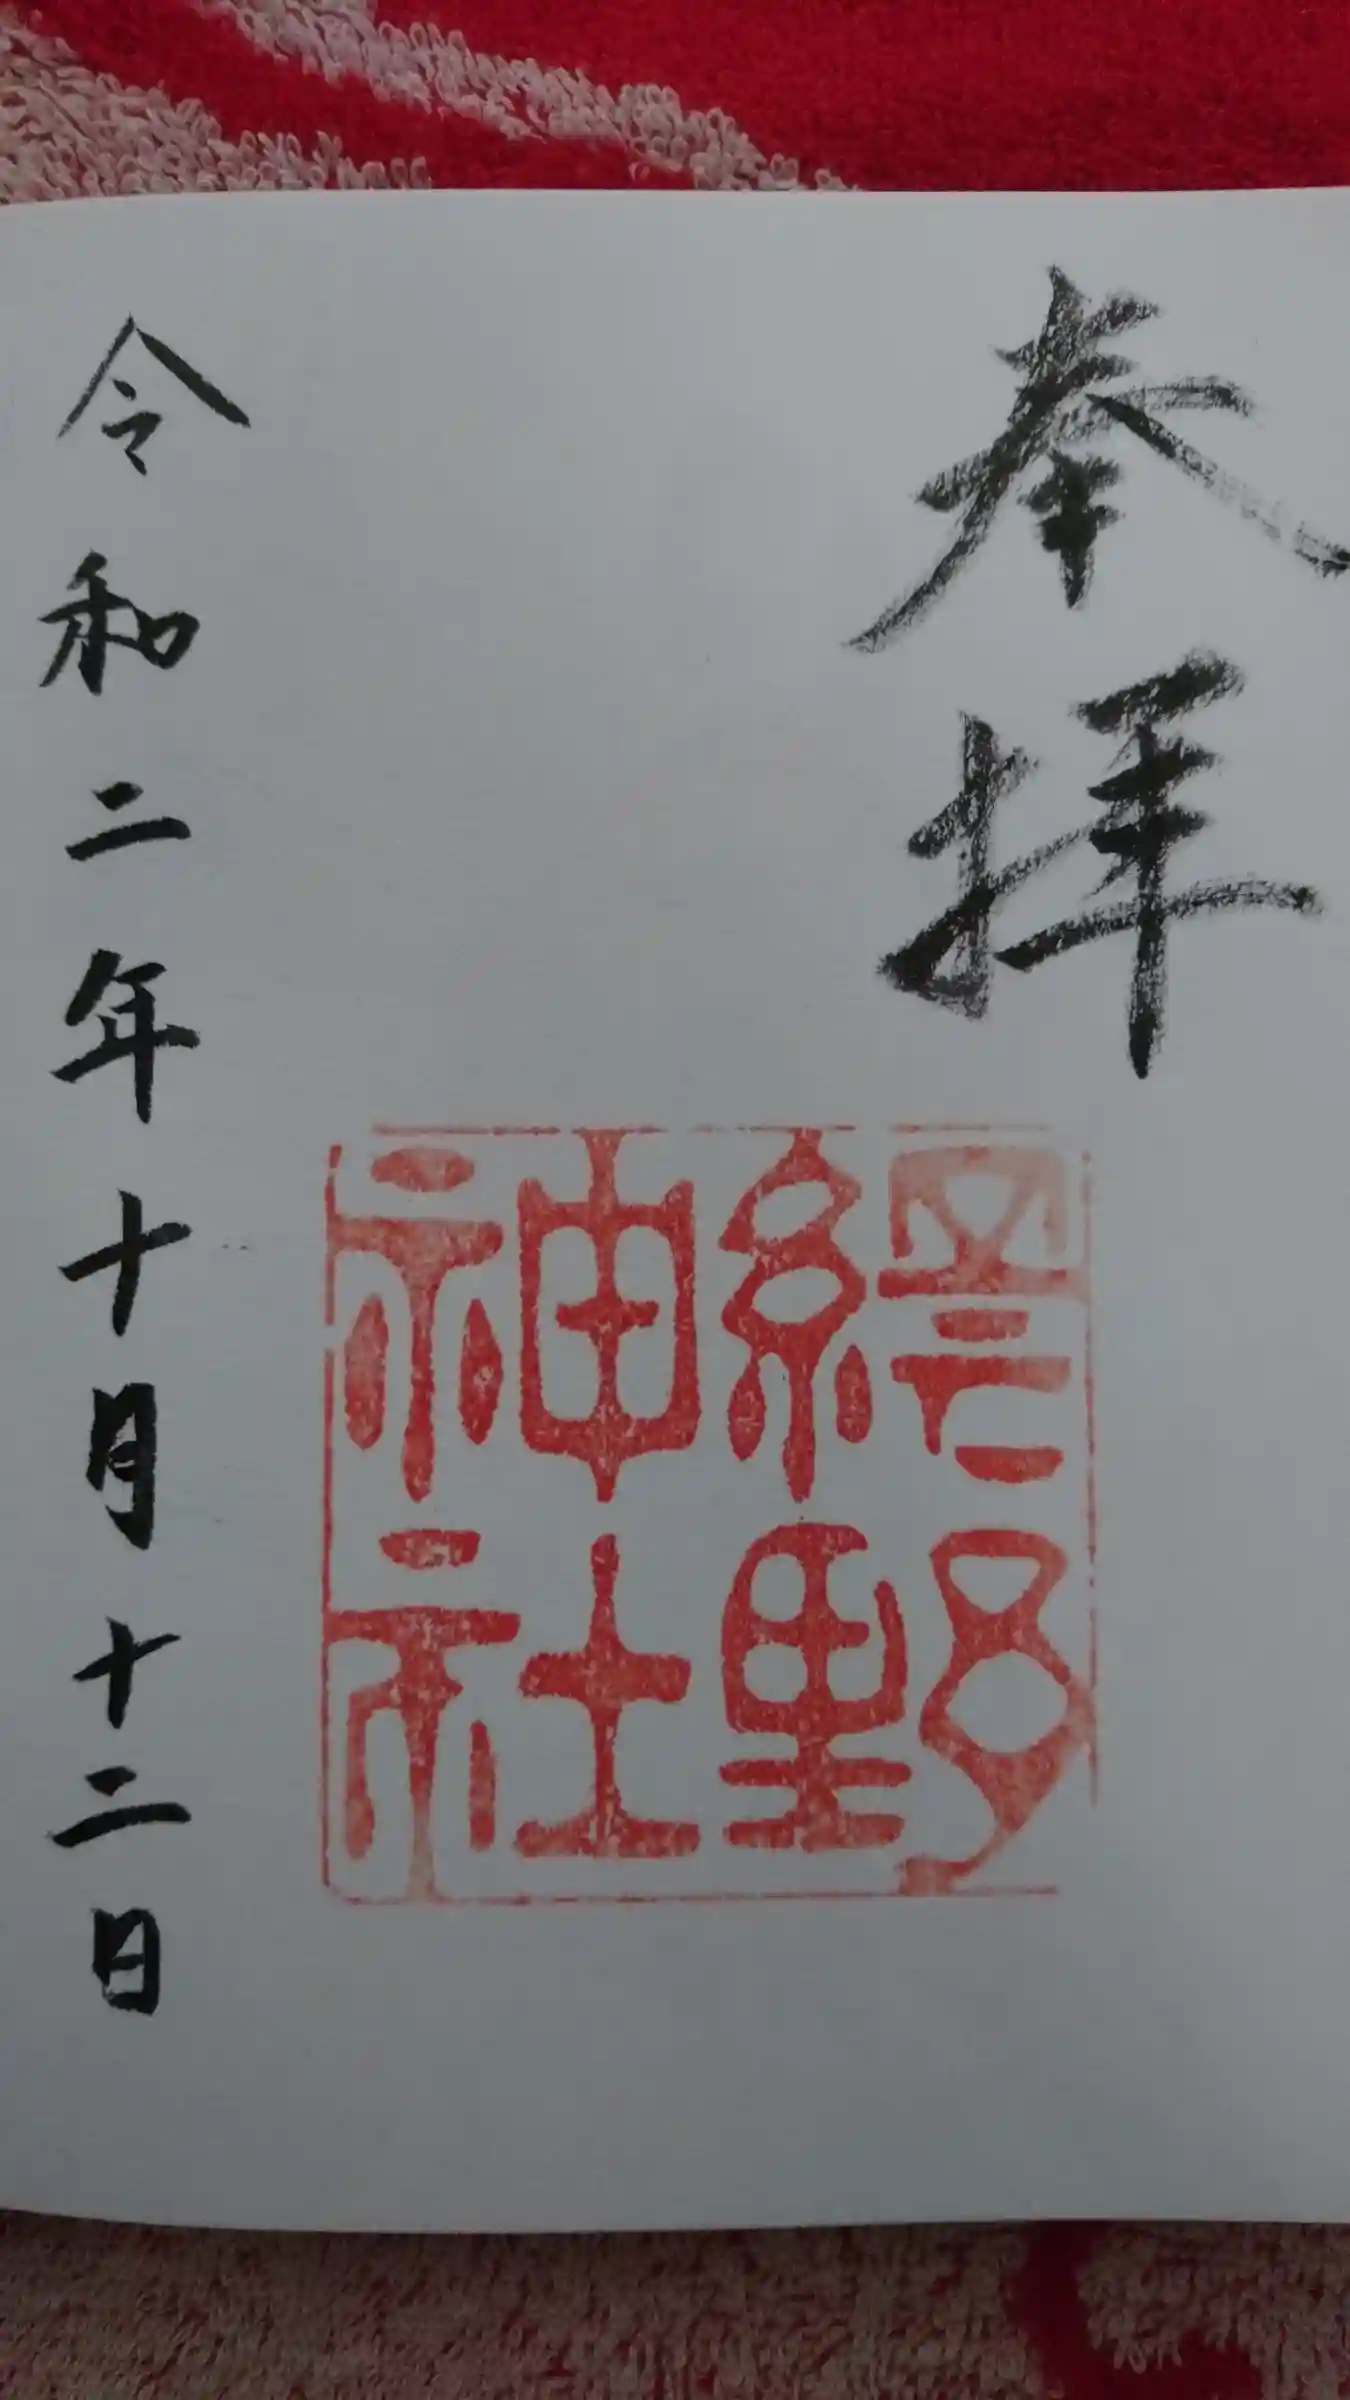 奉拝
野
神社
令和二年十月十二日